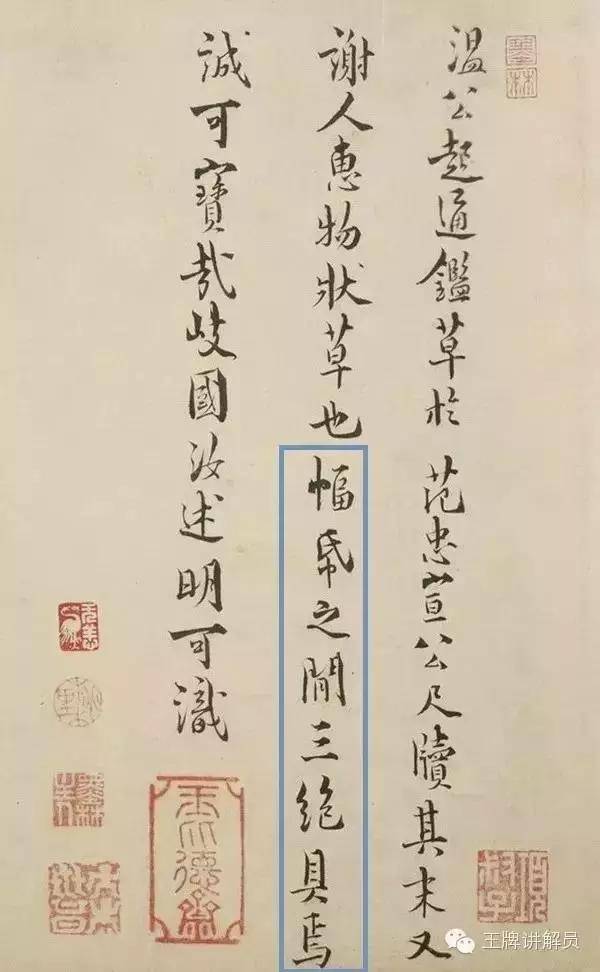 墨林
温公起通鑑草於 范忠宣公尺牘其末又
謝人惠物狀草也幅帋之間三絶具焉
誠可寶哉岐國汝述明可識
項叔子
王牌讲解员